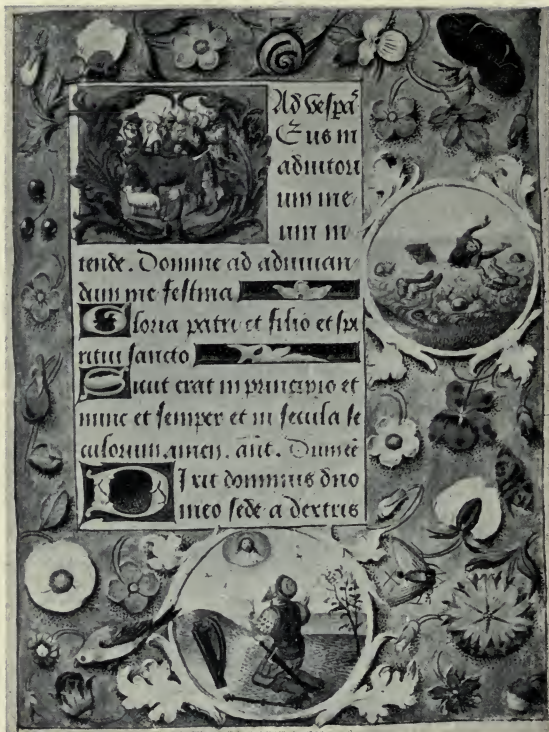 Ad vespā
Eus in
adiutori
um me
um in
tende. Domine ad adiuuan
dum me festina
Gloria patri et filio et spi
ritui sancto
Sicut erat in principio et
nunc et semper et in secula se
culorum. amen. añt. Dum eē
Dixit dominus dño
meo sede a dextris